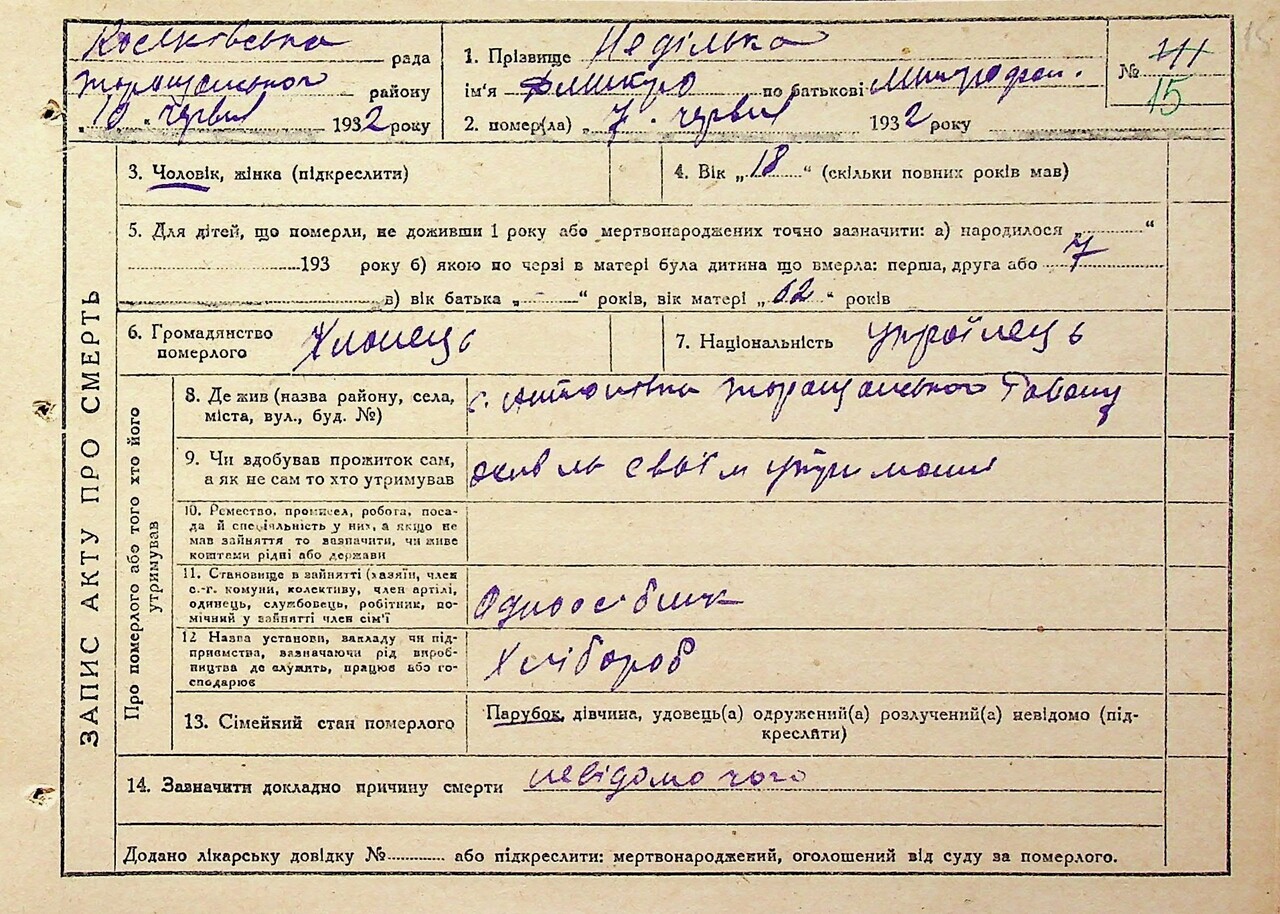 Косяківська рада
Таращанського району
„ 10 „ червня 1932 року
1. Прізвище Неділька
ім'я Дмитро по батькові Митрофан.
2. помер(ла) „ 7 . червня 1932 року
№ 711
15
ЗАПИС АКТУ ПРО СМЕРТЬ
3. Чоловік, жінка (підкреслити)
4. Вік „ 18 “ (скільки повних років мав)
5. Для дітей, що померли, не доживши 1 року або мертвонароджених точно зазначити: а) народилося „ “
193 року б) якою по черзі в матері була дитина що вмерла: перша, друга або 7
в) вік батька „ “ років, вік матері „ 62 “ років
6. Громадянство
померлого
Хлопець
7. Національність українець
Про померлого або того хто його
утримував
8. Де жив (назва району, села,
міста, вул., буд. №)
с. Антонівка Таращанського Району
9. Чи вдобував прожиток сам,
а як не сам то хто утримував
своїм утриманням
10. Ремество, промисел, робота, поса-
да й спеціяльність у них, а якщо не
мав зайняття то вазначити, чи живе
коштами рідні або держави
11. Становище в зайнятті (хазяїн, член
с.-г. комуни, колективу, член артілі,
одинець, службовець, робітник, по-
мічний у зайнятті член сім'ї
Одноосібник
12 Назва установи, вакладу чи під-
приємства, вазначаючи рід вироб-
ництва де служить, працює або го-
сподарює
Хлібороб
13. Сімейний стан померлого
Парубок, дівчина, удовець(а) одружений(а) розлучений(а) невідомо (під-
креслити)
14. Зазначити докладно причину смерти невідомо чого
Додано лікарську довідку № або підкреслити: мертвонароджений, оголошений від суду за померлого.